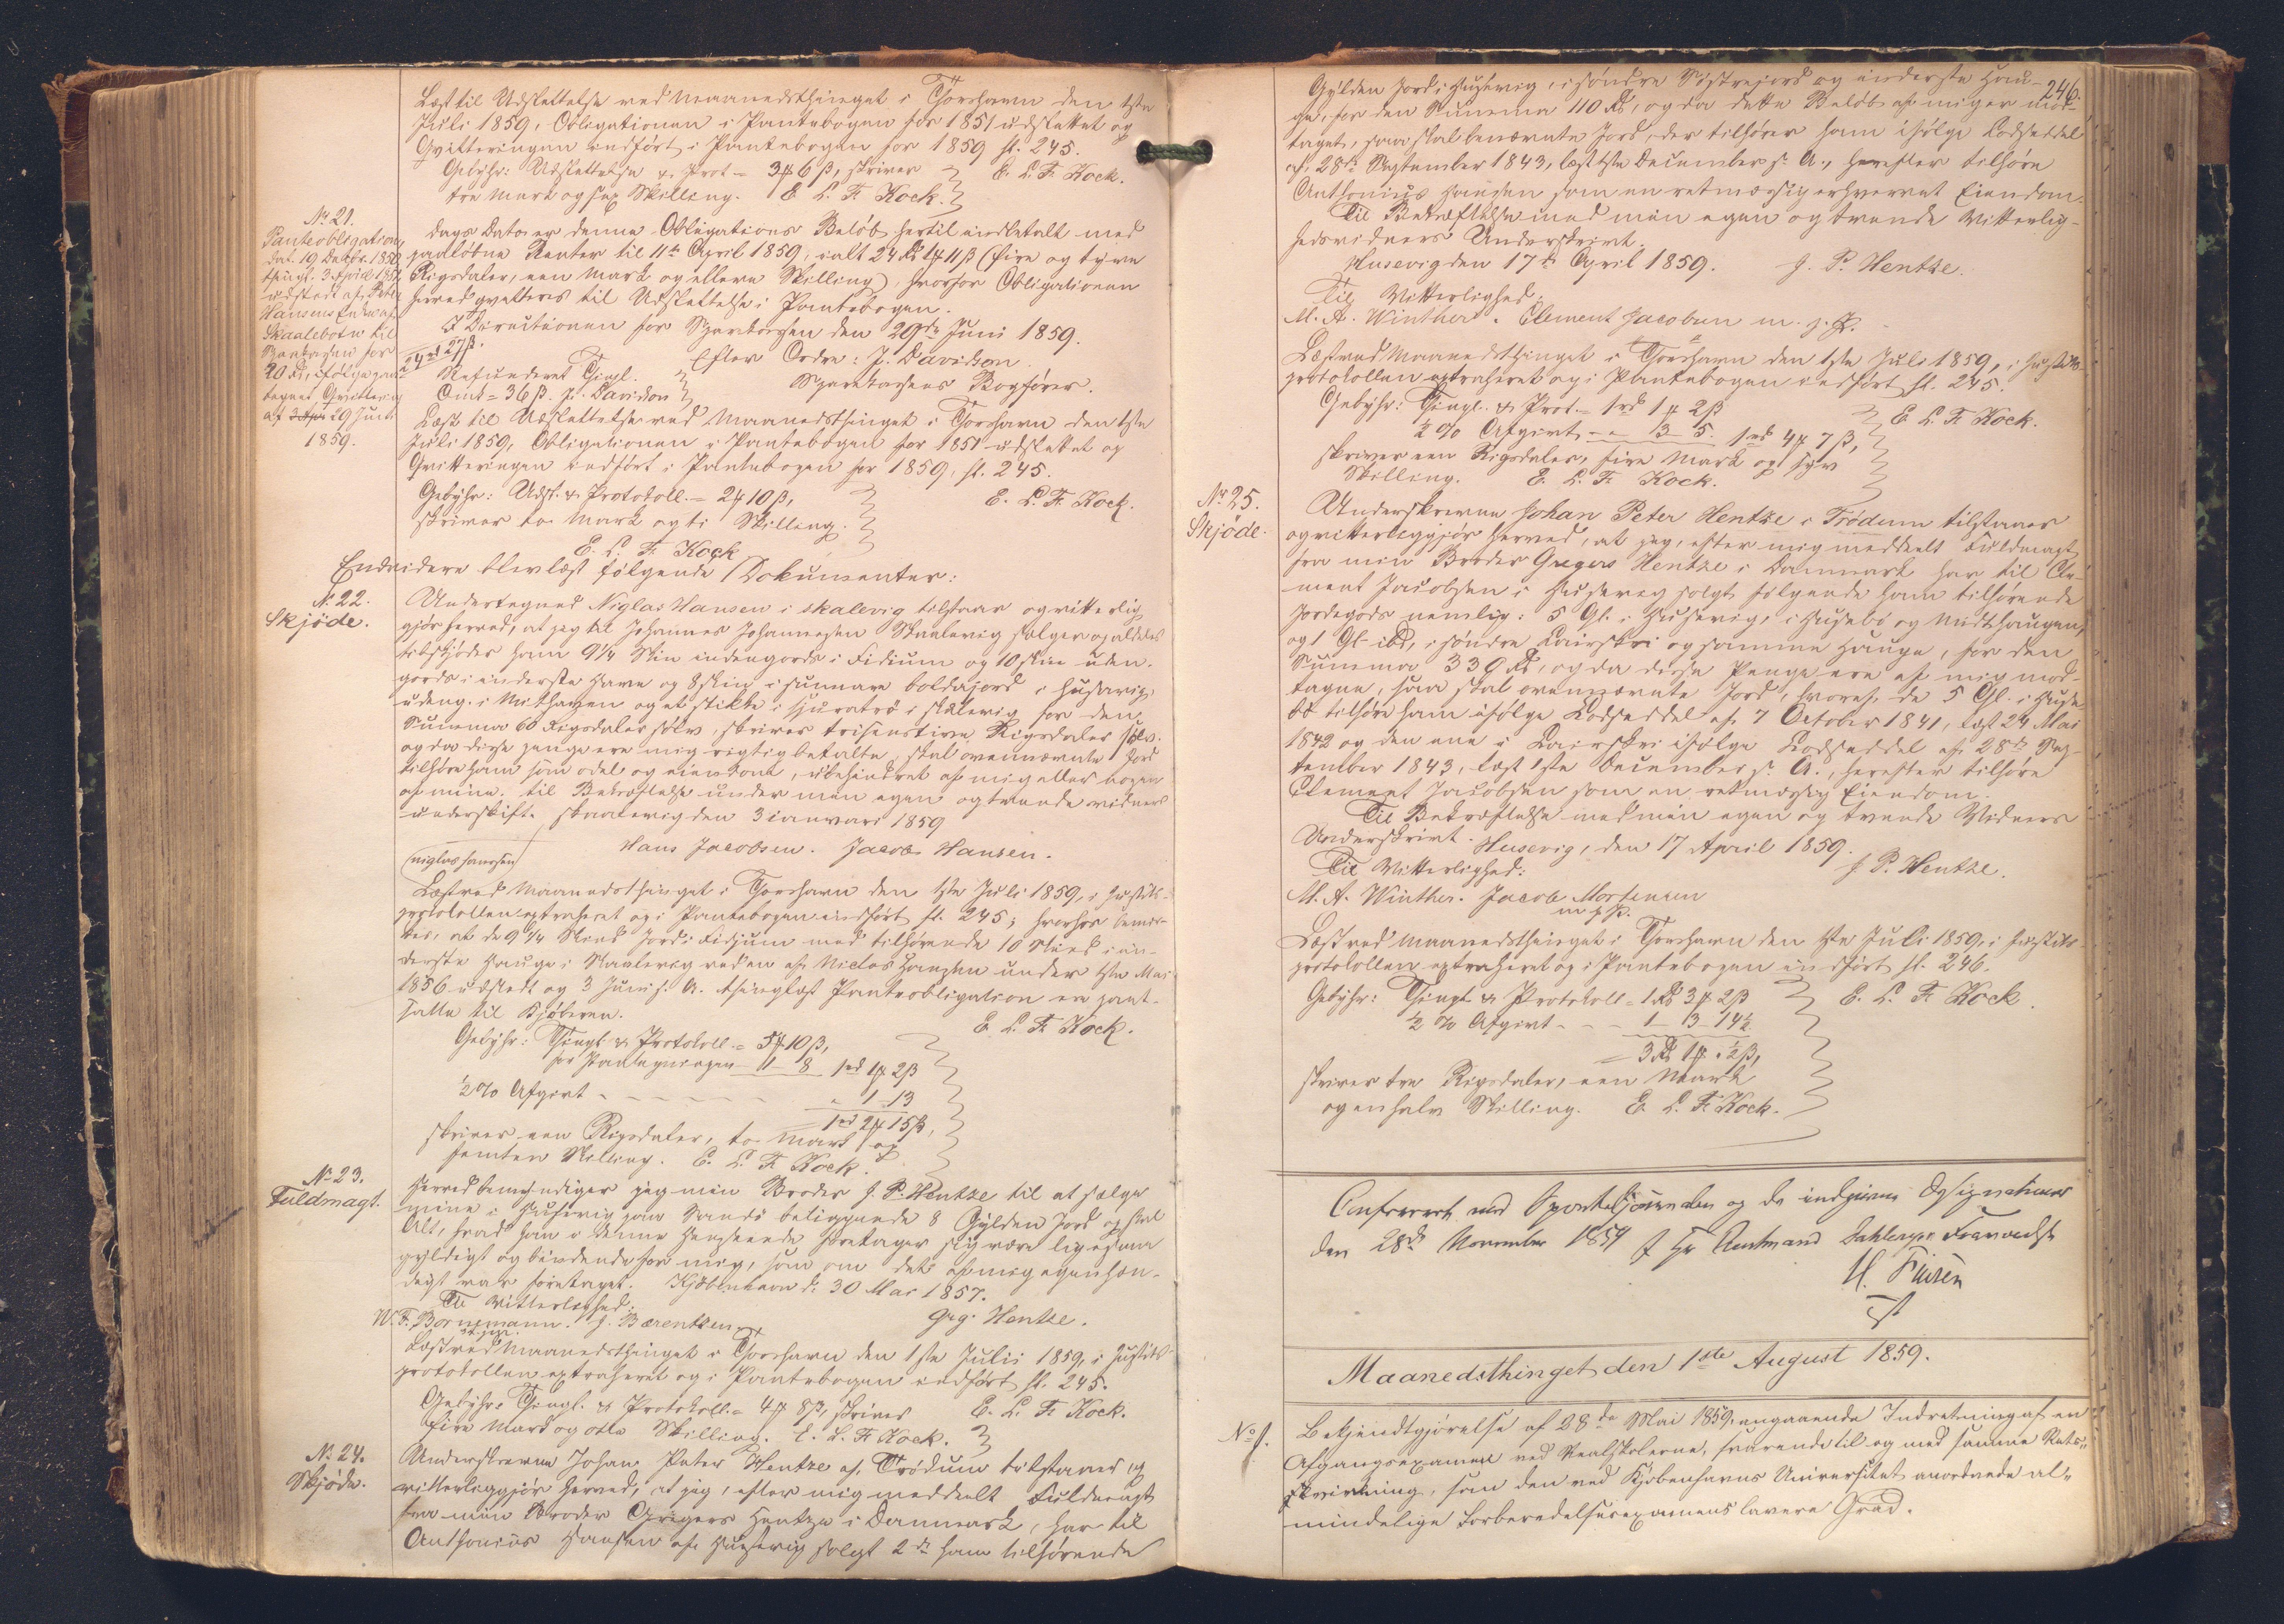 Læst til Udslettelse ved Maanedsthinget i Thorshavn den 1ste
Juli 1859, Obligationen i Pantebogen for 1851 udslettet og
Qvitteringen indført i Pantebogen for 1859 fl. 245.
Gebyhr: Udslettelse & Prot = 3 # 6 β, skriver E. L. F. Kock.
tre Mark og sex Skilling. E. L. F. Kock.
No 21.
Panteobligation
dat. 19 Decbr. 1850
thingl. 3 April 1851
udstedt af Peter
Hansens Enke af
Skaalebotn til
Sparkassen for
20 Rd, ifølge paa-
tegnet Qvittering
af 29 Juni
1859.
Dags Dato er denne Obligations Beløb hertil indbetalt med
paaløbne Renter til 11te April 1859, ialt 24 Rd 1 # 11 β (fire og tyve
Rigsdaler, een Mark og elleve Skilling), hvorfor Obligationen
herved qvitteres til Udslettelse i Pantebogen.
I Directionen for Sparekassen den 29de Juni 1859.
24 rd 27 β.
Efter Ordre: J. Davidson
Refunderet Thingl. Sparekassens Bogfører.
Omk = 36 β. J. Davidson
Læst til Udslettelse ved Maanedsthinget i Thorshavn den 1ste
Juli 1859, Obligationen i Pantebogen for 1851 udslettet og
Qvitteringen indført i Pantebogen for 1859, fl. 245.
Gebyhr: Udsl. & Protokoll. = 2 # 10 β, E. L. F. Kock.
skriver to Mark og ti Skilling.
E. L. F. Kock
Endvidere blev læst følgende Dokumenter:
No 22.
Skjøde.
Undertegned Niglas Hansen i skalevig tilstaar og vitterlig
gjør herved, at jeg til Johannes Johannesen Skaalevig sælger og aldeles
tilskjøder ham 9 1/4 Skin indengards i Fidium og 10 skin uden-
gards i inderste Have og 8 skin i sunnare boldajord i husavig,
udeng. i Mithavgen og et stikke i sjuratrø i skalevig for den
Summa 60 Rigsdaler sølv, skriver trisenstive Rigsdaler sølv.
og da disse penge ere mig rigtig betalte, skal ovennævnte Jord
tilhøre ham som odel og eiendom, ubehindret af mig eller nogen
af mine. til Bekræftelse under min egen og tvende vidners
underskift. skaalevig den 3 ianvari 1859
niglas hansen Hans Jacobsen. Jacob Hansen.
Læst ved Maanedsthinget i Thorshavn den 1ste Juli 1859, i Justits-
protokollen extraheret og i Pantebogen indført fl. 245; hvorhos bemær-
kes, at de 9 1/4 Skind Jord i Fidjum med tilhørende 10 Skind i in-
derste Hauge i Skaalevig ved en af Niclas Hansen under 1ste Mai
1856 udstedt og 3 Juni s. A. thinglæst Panteobligation ere pant-
satte til Kjøberen. E. L. F. Kock.
Gebyhr: Thingl. & Protokoll. = 5 # 10 β,
for Paategningen 1 - 8 1 rd 1 # 2 β
1/2 % Afgivt - - - - - " 1 - 13
1 rd 2 # 15 β,
skriver een Rigsdaler, to Mark og
femten Skilling. E. L. F. Kock.
No 23.
Fuldmagt.
Herved bemyndiger jeg min Broder J. P. Hentze til at sælge
mine i Husevig paa Sandø beliggende 8 Gylden Jord og skal
Alt, hvad han i denne Henseende foretager sig være ligesaa
gyldigt og bindende for mig, som om det af mig egenhæn-
digt var foretaget. Kjøbenhavn d. 30 Mai 1857.
Til Vitterlighed:
W. F. Bornemann. J. Bærentzen. Greg. Hentze.
Læst ved Maanedsthinget i Thorshavn den 1ste Julii 1859, i Justits
protokollen extraheret og i Pantebogen indført fl. 245.
Gebyhr: Thingl. & Protokoll. = 4 # 8 β, skriver E. L. F. Kock.
fire Mark og otte Skilling. E. L. F. Kock.
No 24.
Skjøde.
Underskrevne Johan Peter Hentze af Trødum tilstaaer og
vitterliggjør herved, at jeg, efter mig meddeelt Fuldmagt
fra min Broder Gregers Hentze i Danmark, har til
Anthonius Hansen af Husevig solgt 2 de ham tilhørende
246.
Gylden Jord i Husevig, i søndre Søstrejord og inderste Hau-
ge, for den Summa 110 Rd, og da dette Beløb af mig er mod-
taget, saa skal benævnte Jord, der tilhører ham ifølge Lodseddel
af 28de September 1843, læst 1ste December s. A., herefter tilhøre
Anthonius Hansen som en retmæssig erhvervet Eiendom.
Til Bekræftelse med min egen og tvende Vitterlig-
hedsvidners Underskrivt.
Husevig den 17de April 1859. J. P. Hentze.
Til Vitterlighed:
M. A. Winther. Clement Jacobsen m. f. P.
Læst ved Maanedsthinget i Thorshavn den 1ste Juli 1859, i Justits-
protokollen extraheret og i Pantebogen indført fl. 245.
Gebyhr: Thingl. & Prot. = 1 rd 1 # 2 β
1/2 % Afgivt - " 3 - 5. 1 rd 4 # 7 β, E. L. F. Kock.
skriver een Rigsdaler, fire Mark og syv
Skilling. E. L. F. Kock.
No 25.
Skjøde.
Underskrevne Johan Peter Hentze i Trødum tilstaaer
og vitterliggjør herved, at jeg, efter mig meddeelt Fuldmagt
fra min Broder Gregers Hentze i Danmark har til Cle-
ment Jacobsen i Husevig solgt følgende ham tilhørende
Jordegods nemlig: 5 Gl. i Husevig, i Husebø og Midthaugen,
og 1 Gl. ibd, i søndre Lairskri og samme Hauge, for den
Summa 339 Rd, og da disse Penge ere af mig mod-
tagne, saa skal ovennævnte Jord, hvoraf de 5 Gl. i Huse-
bø tilhøre ham ifølge Lodseddel af 7 October 1841, læst 24 Mai
1842 og den ene i Lairskri ifølge Lodseddel af 28de Sep-
tember 1843, læst 1ste December s. A., herefter tilhøre
Clement Jacobsen som en retmæssig Eiendom.
Til Bekræftelse med min egen og tvende Vidners
Underskrivt. Husevig, den 17 April 1859.
Til Vitterlighed: J. P. Hentze.
M. A. Winther. Jacob Mortensen
m f P.
Læst ved Maanedsthinget i Thorshavn den 1ste Juli 1859, i Justits
protokollen extraheret og i Pantebogen indført fl. 246.
Gebyhr: Thingl. & Protokoll = 1 Rd 3 # 2 β E. L. F. Kock.
1/2 % Afgivt - - - 1 - 3 - 14 1/2
= 3 Rd 1 # " 1/2 β,
skriver tre Rigsdaler, een Mark
og en halv Skilling. E. L. F. Kock.
Confereret med Sportelsjournalen og de indgivne Designationer
den 28de November 1859 f Hr Amtmand Dahlerups
H.
Maanedsthinget den 1ste August 1859.
No 1.
Bekjendtgjørelse af 28de Mai 1859. angaaende Indretning af en
Afgangsexamen ved Realskolerne, svarende til og med samme Rets-
virkning, som den ved Kjøbenhavns Universitet anordnede al-
mindelige Forberedelsesexamens lavere Grad.